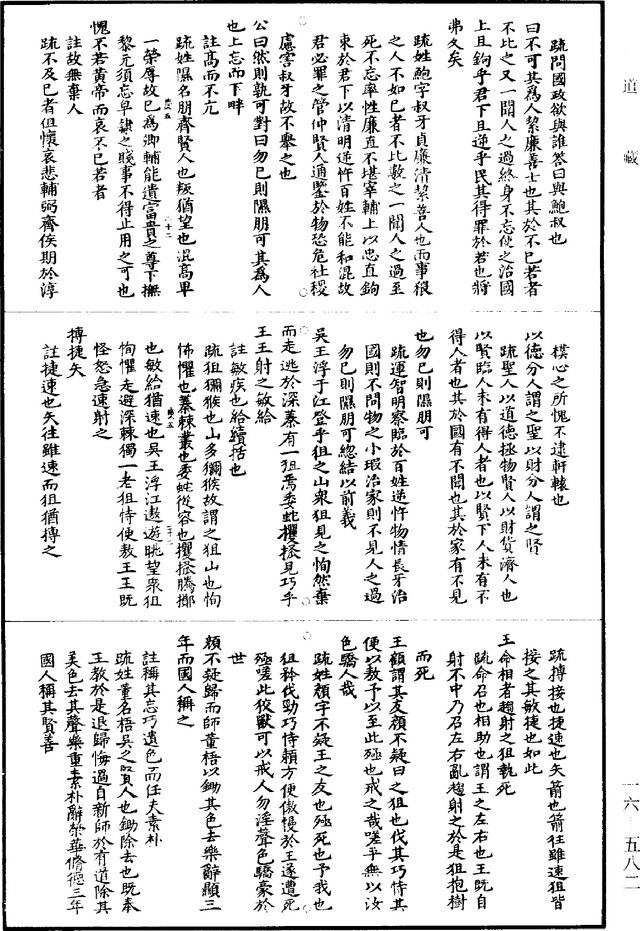 道藏
疏問國政欲與誰答曰與鮑叔也
曰不可其為人絜廉善士也其於不已若者
不比之又一聞人之過終身不忘使之治國
上且鉤乎君下且逆乎民其得罪於若也將
弗久矣
疏姓鮑字叔牙貞廉清絜善人也而事很
之人不如已者不比數之一聞人之過至
死不忘率性廉直不堪宰輔上以忠直鉤
束於君下以清明逆忤百姓不能和混故
君必罪之管仲賢人通鑒於物恐危社稷
慮害叔牙故不舉之也
公曰然則孰可對曰勿已則隰朋可其為人
也上忘而下畔
註高而不亢
疏姓隰名朋齊賢人也叛猶望也混高卑
一榮辱故已為卿輔能遺富貴之尊下撫
黎元須忘皁隸之賤事不得止用之可也
愧不若黃帝而哀不已若者
註故無棄人
疏不及已者但懷哀悲輔弼齊侯期於淳
樸心之所愧不逮軒轅也
以德分人謂之聖以財分人謂之賢
疏聖人以道德拯物賢人以財貨濟人也
以賢臨人未有得人者也以賢下人未有不
得人者也其於國有不聞也其於家有不見
也勿已則隰朋可
疏運智明察臨於百姓逆忤物情長牙治
國則不問物之小瑕治家則不見人之過
勿已則隰朋可總結以前義
吳王浮于江登乎狙之山眾狙見之恂然棄
而走逃於深蓁有一狙焉委蛇攫搔見巧乎
王王射之敏給
註敏疾也給續括也
疏狙獼猴也山多獼猴故謂之狙山也恂
怖懼也蓁棘叢也委蛇從容也攫搔騰擲
也敏給猶速也吳王浮江遨遊眺望眾狙
恂懼走避深棘獨一老狙恃便敖王王既
怪怒急速射之
搏捷矢
註捷速也矢往雖速而狙猶搏之
疏搏接也捷速也矢箭也箭往雖速狙皆
接之其敏捷也如此
王命相者趨射之狙執死
疏命召也相助也謂王之左右也王既自
射不中乃召左右亂趨射之於是狙抱樹
而死
王顧謂其友顏不疑曰之狙也伐其巧恃其
便以敖予以至此殛也戒之哉嗟乎無以汝
色驕人哉
疏姓顏字不疑王之友也殛死也予我也
狙矜伐勁巧恃賴方便傲慢於王遂遭死
殛嗟此狡獸可以戒人勿淫聲色驕豪於
世
顏不疑歸而師董梧以鋤其色去樂辭顯三
年而國人稱之
註稱其忘巧遺色而任夫素朴
疏姓董名梧吳之賢人也鋤除去也既奉
王教於是退歸悔過自新師於有道除其
美色去其聲樂重素朴辭榮華脩德三年
國人稱其賢善
一六—五八二